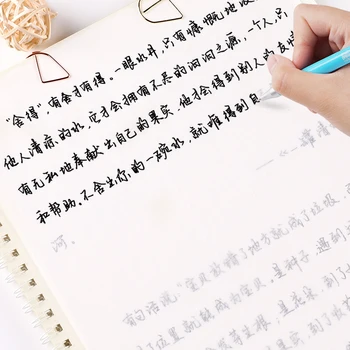 "舍得",有舍才有得,一眼水井,只有慷慨地
他人清凉的水,它才会拥有不尽的汩汩之源,一个人只
有无私地奉献出自己的果实,他才会得到别人的友
和帮助,不舍出你的一碗水,就难得到
河。
有句话说:"宝贝放错了地方就成了垃圾,
了位置就能成为宝贝,是种子,遇到
生根,是花朵,到了